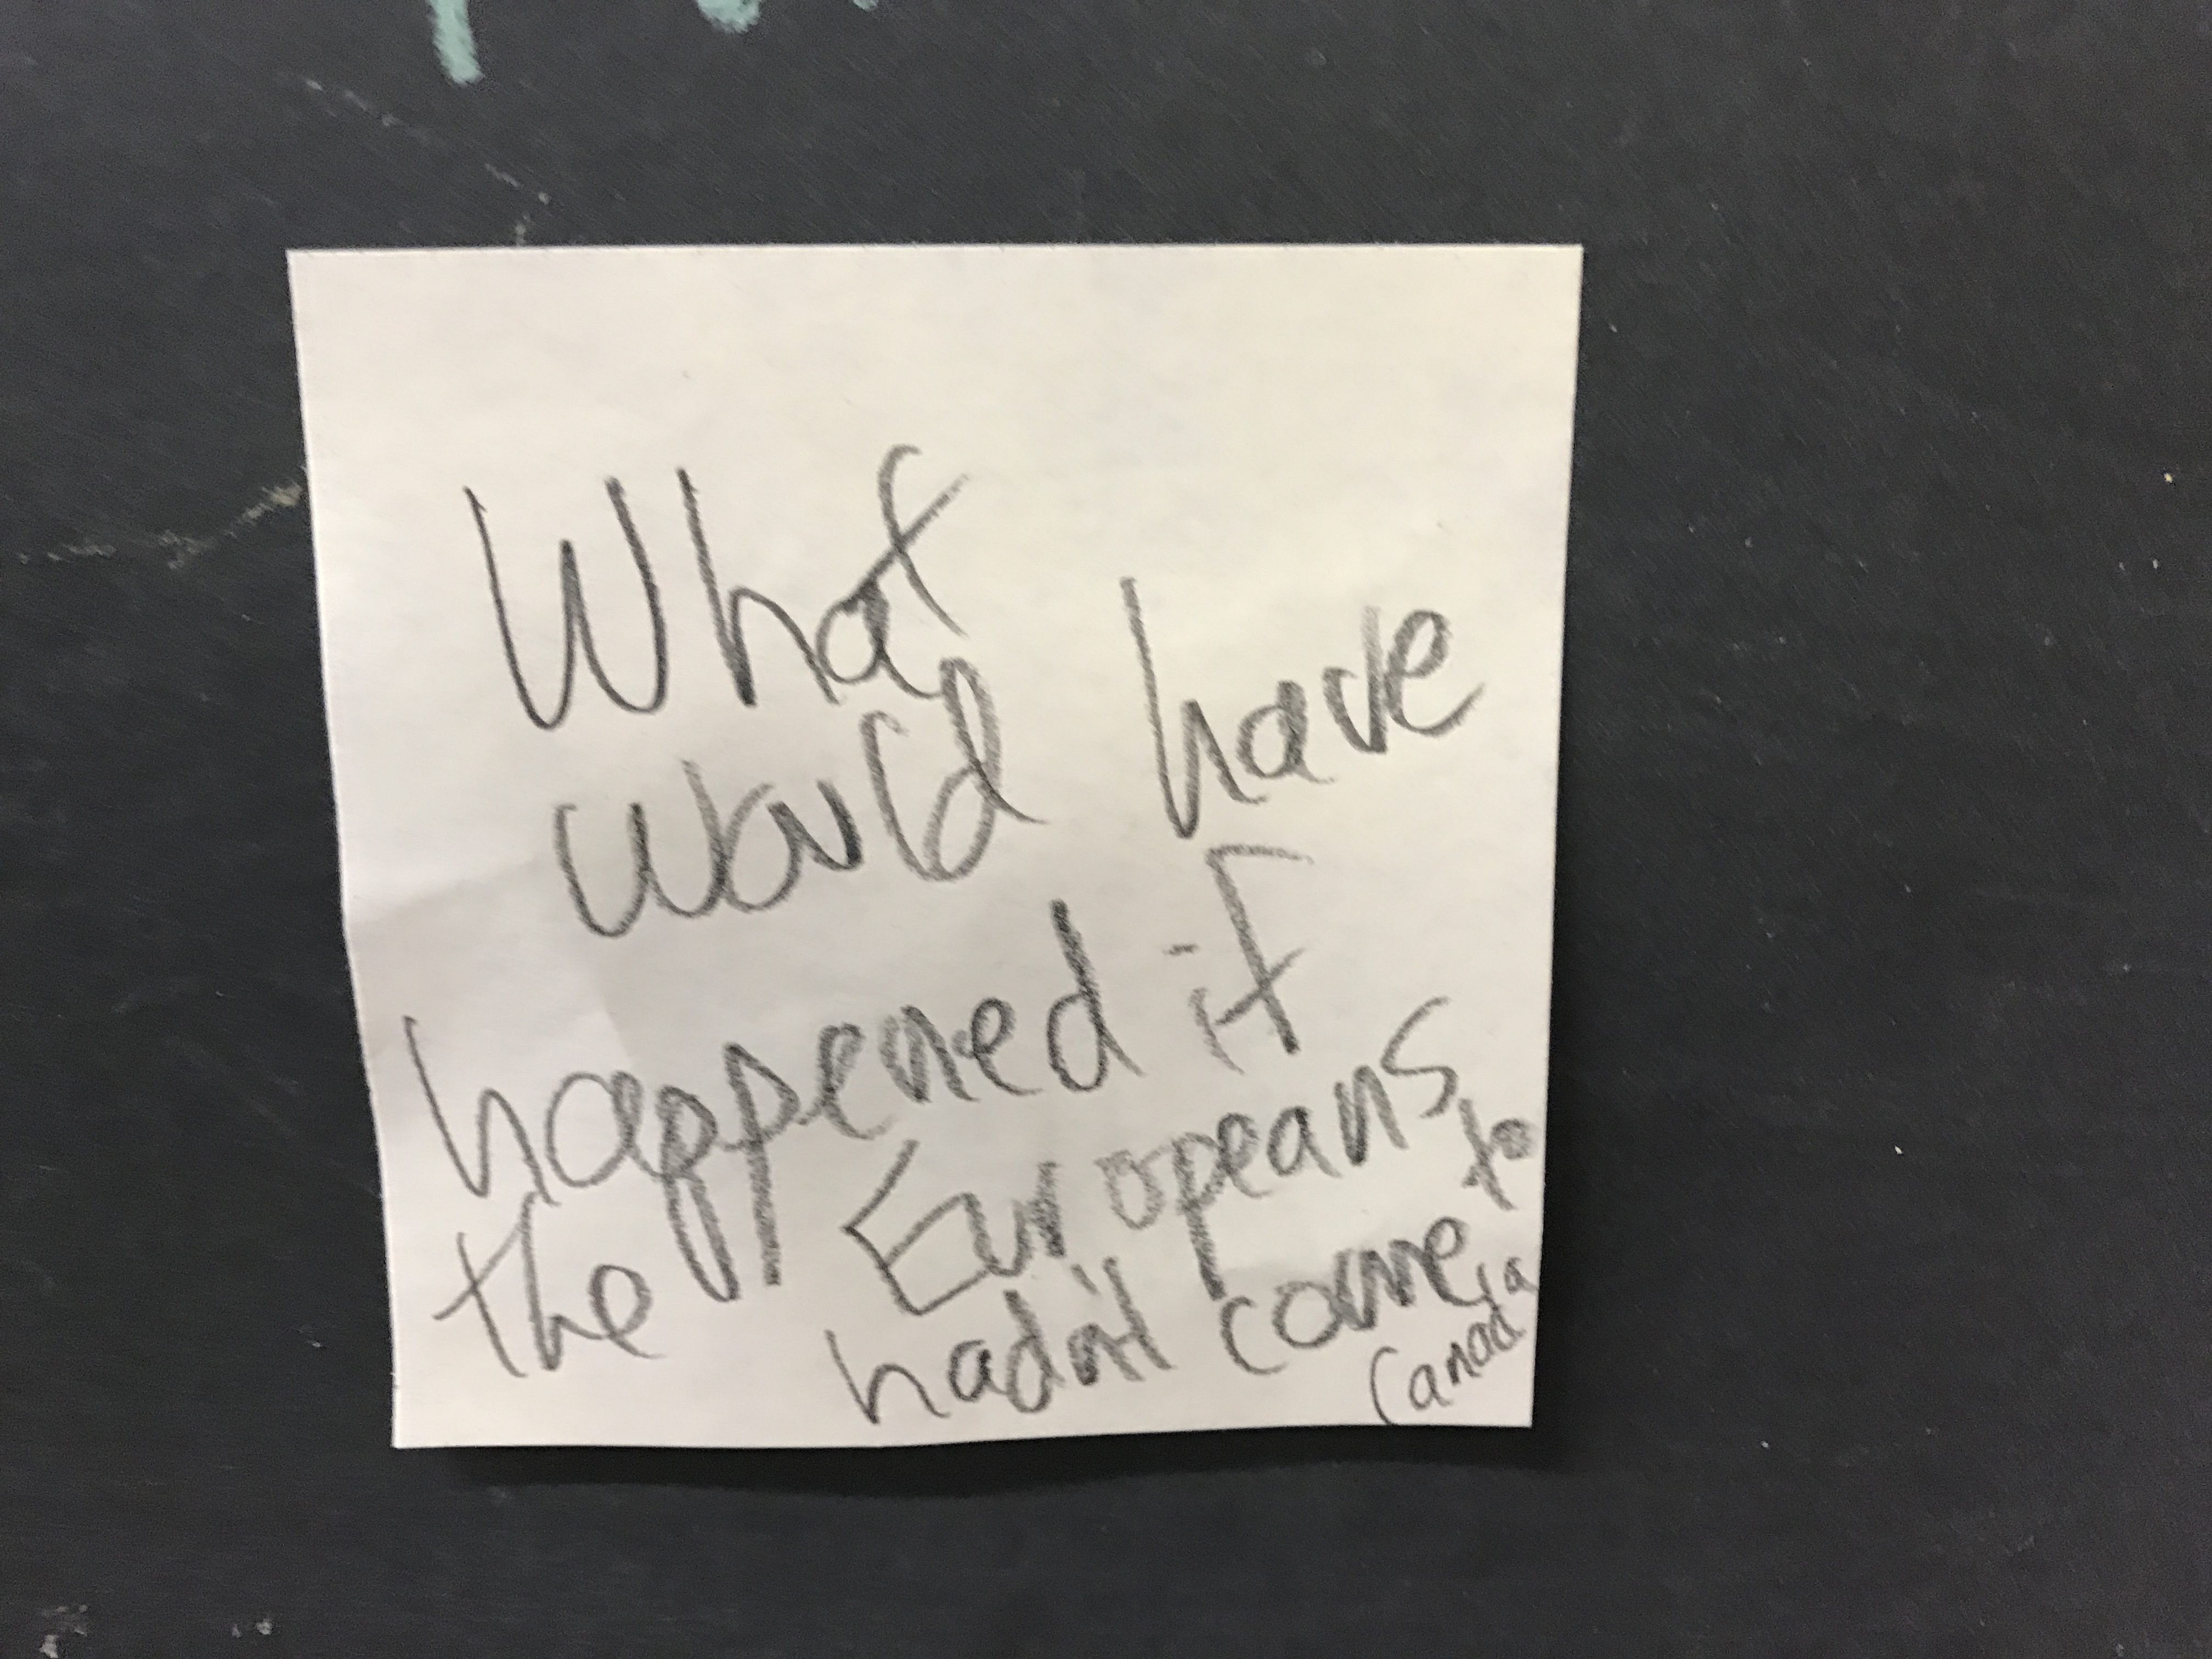 What
would have
happened if
the Europeans
hadn't come to
Canada